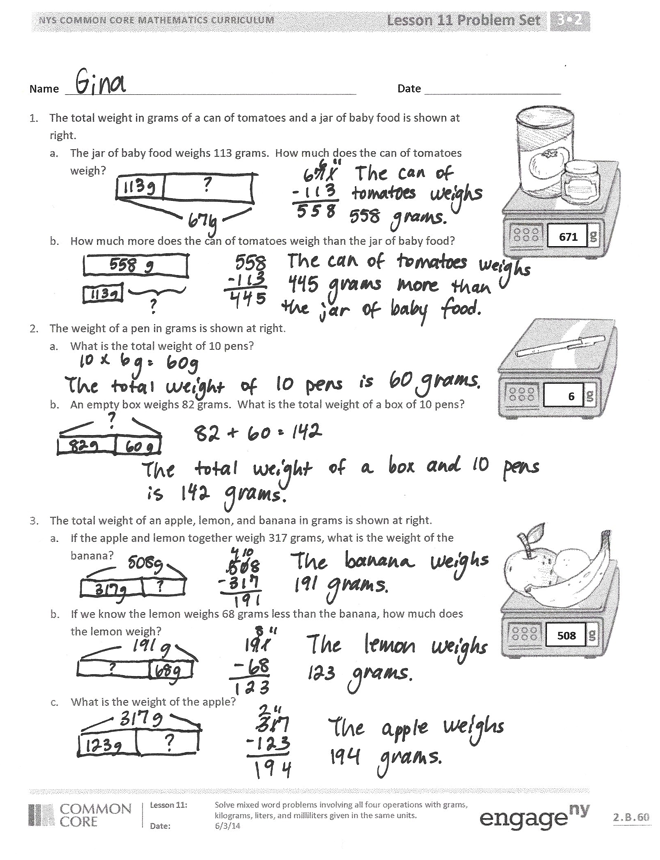 NYS COMMON CORE MATHEMATICS CURRICULUM
Lesson 11 Problem Set
3•2
Name Gina
Date
1. The total weight in grams of a can of tomatoes and a jar of baby food is shown at
right.
a. The jar of baby food weighs 113 grams. How much does the can of tomatoes
weigh?
113g ?
671g
6 11
671
-113
558
The can of
tomatoes weighs
558 grams.
671 g
b. How much more does the can of tomatoes weigh than the jar of baby food?
558 g
113g
?
558
-113
445
The can of tomatoes weighs
445 grams more than
the jar of baby food.
2. The weight of a pen in grams is shown at right.
a. What is the total weight of 10 pens?
10 x 6g = 60g
The total weight of 10 pens is 60 grams.
6 g
b. An empty box weighs 82 grams. What is the total weight of a box of 10 pens?
?
82g 60g
82 + 60 = 142
The total weight of a box and 10 pens
is 142 grams.
3. The total weight of an apple, lemon, and banana in grams is shown at right.
a. If the apple and lemon together weigh 317 grams, what is the weight of the
banana?
508g
317g ?
4 10
508
-317
191
The banana weighs
191 grams.
508 g
b. If we know the lemon weighs 68 grams less than the banana, how much does
the lemon weigh?
191g
? 68g
8 11
191
-68
123
The lemon weighs
123 grams.
c. What is the weight of the apple?
317g
123g ?
2 11
317
-123
194
The apple weighs
194 grams.
COMMON
CORE
Lesson 11:
Solve mixed word problems involving all four operations with grams,
kilograms, liters, and milliliters given in the same units.
Date:
6/3/14
engage ny
2.B.60